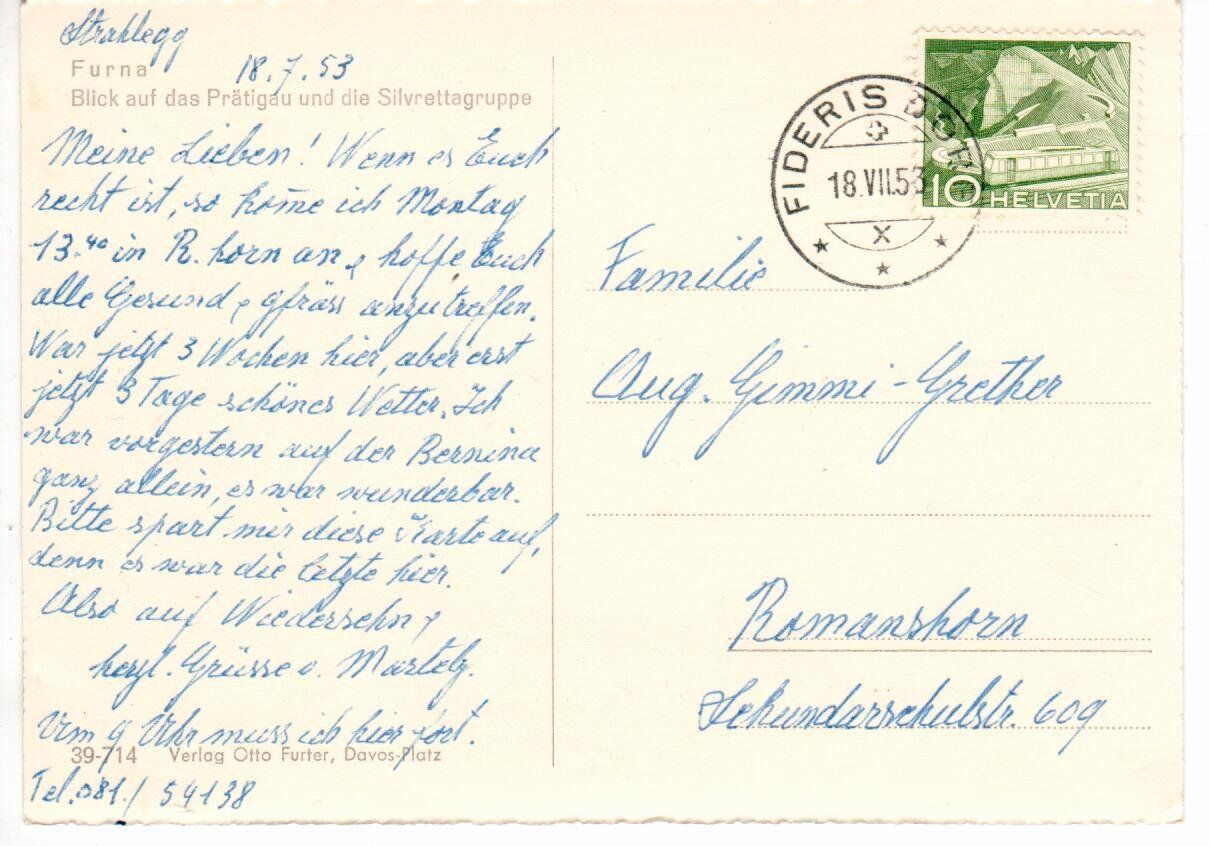 Strahlegg
Furna 18.7.53
Blick auf das Prätigau und die Silvrettagruppe
Meine Lieben! Wenn es Euch
recht ist, so kom̄e ich Montag
13.40 in R.horn an & hoffe Euch
alle Gesund & gfräss anzutreffen.
War jetzt 3 Wochen hier, aber erst
jetzt 3 Tage schönes Wetter. Ich
war vorgestern auf der Bernina
ganz allein, es war wunderbar.
Bitte spart mir diese Karte auf,
denn es war die letzte hier.
Also auf Wiedersehn &
herzl. Grüsse v.
Um 9 Uhr muss ich hier fort.
39-714 Verlag Otto Furter, Davos-Platz
Tel. 081./ 54138
FIDERIS DORF
18.VII.53
X
10 HELVETIA
Familie
Aug. Gimmi-Grether
Romanshorn
Sekundarschulstr. 609